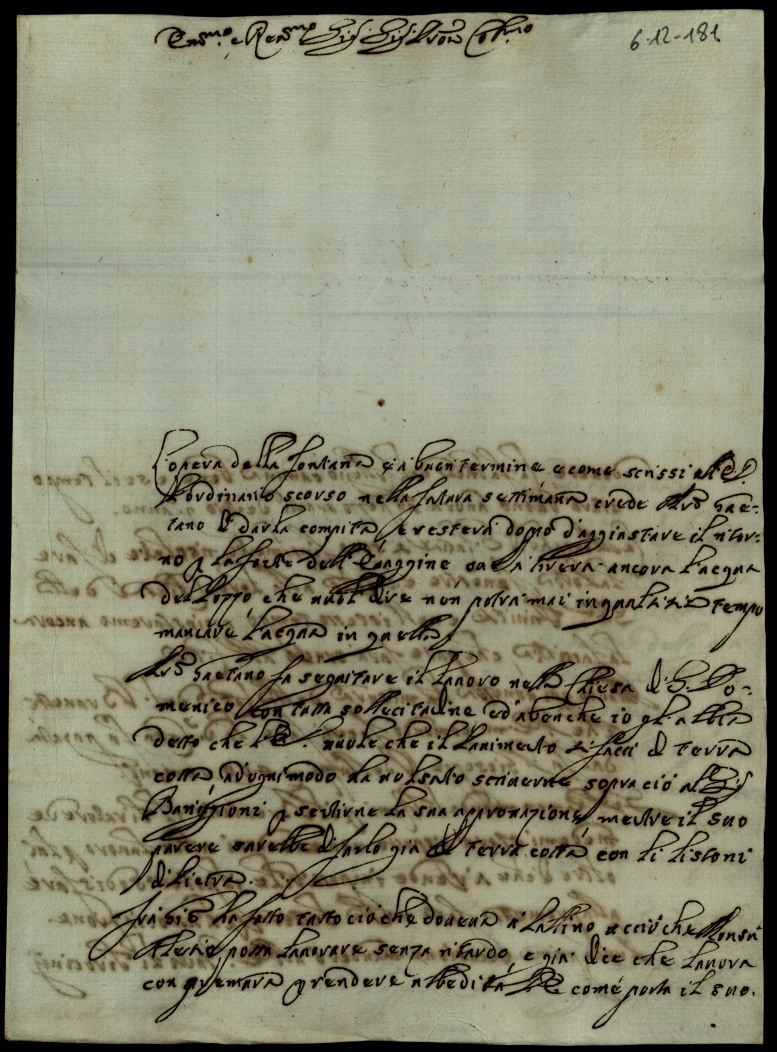 Em.mo e Rev.mo Sig.r Sig.r Pron Col.mo
6-12-181
L'opera della fontana è a buon termine e come scrissi all'E.V.
l'ordinario scorso nella futura settimana crede Mro Gae-
tano di darla compita, e resterà dopo d'aggiustare il ritor-
no p la fonte dell' ove si averà ancora l'acqua
del Pozzo che vuol dire non potrà mai in qualsisia tempo
mancare l'acqua in quella.
Mro Gaetano fa seguitare il lavoro nella Chiesa di S. Do-
menico con tutta sollecitudine, ed abenche io gl'abbia
detto che l'E.V. vuole che il Pavimento si facci di terra
cotta ad ogni modo ha voluto scriverne sopra ciò al Sig.r
p sentirne la sua approvazione, mentre il suo
parere sarebbe di farlo già di terra cotta con li listoni
di Pietra.
Frà ha fatto tutto ciò che doveva a Latino, acciò che Monsù
possa lavorare senza ritardo, e già dice che lavora
con premura p rendere ubbedita l'E.V. come porta il suo